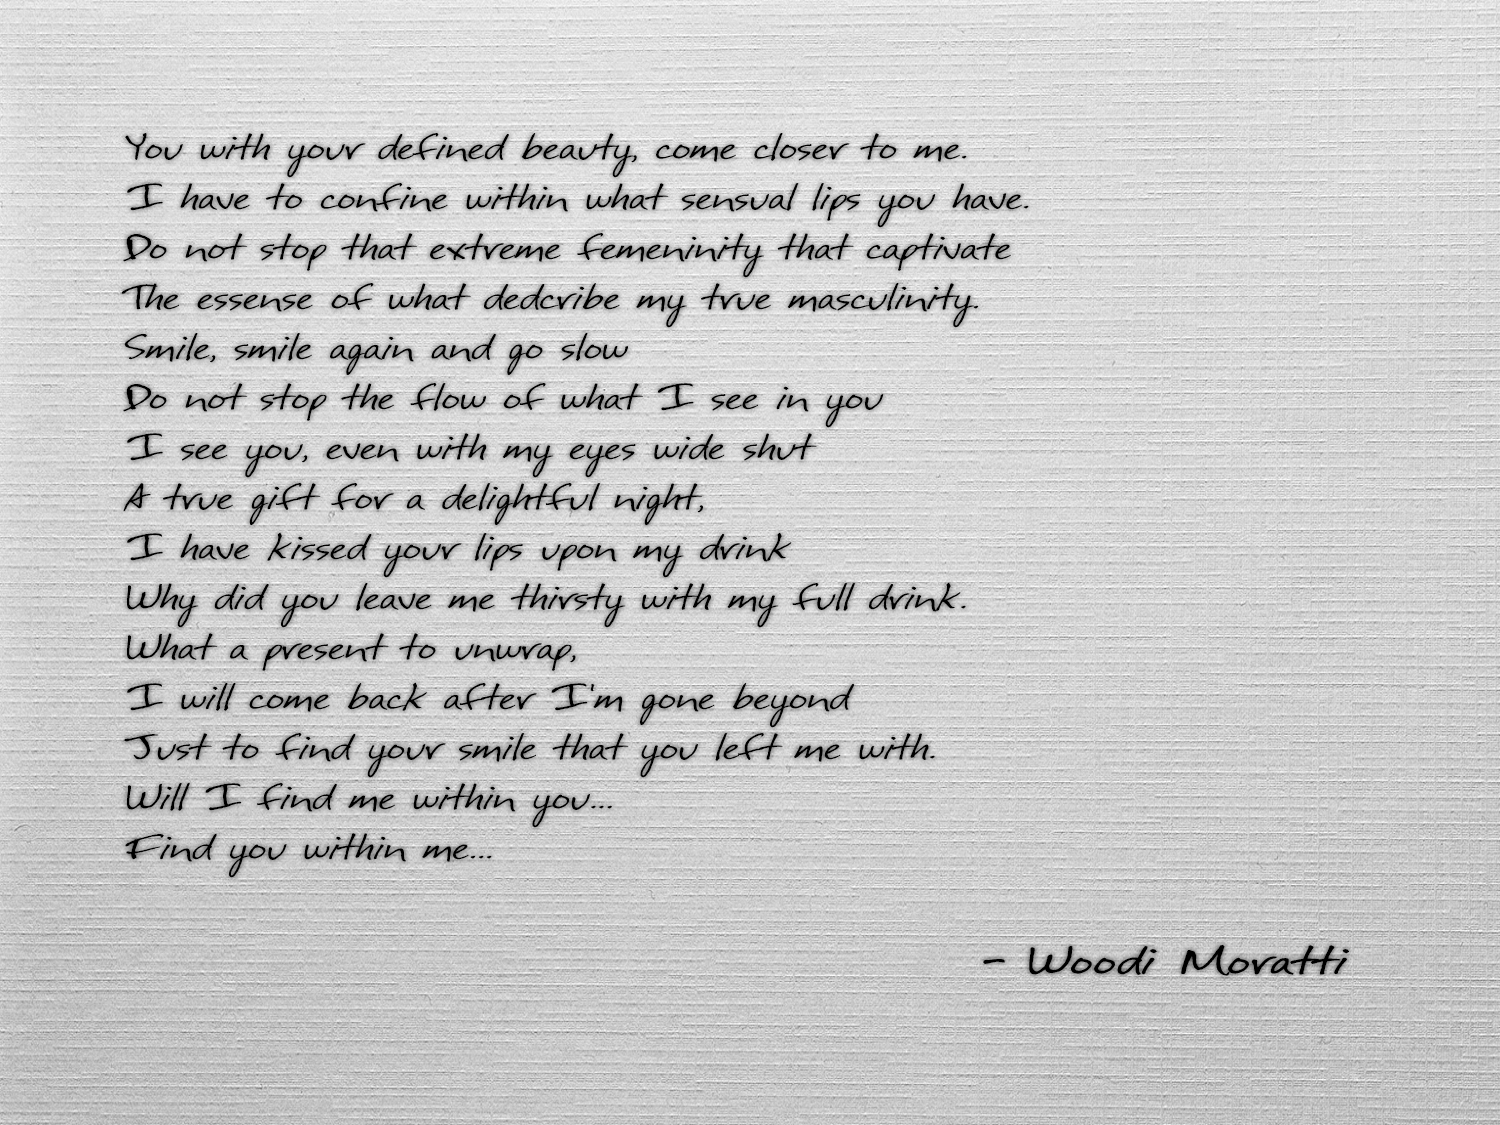 You with your defined beauty, come closer to me.
I have to confine within what sensual lips you have.
Do not stop that extreme femeninity that captivate
The essense of what dedcribe my true masculinity.
Smile, smile again and go slow
Do not stop the flow of what I see in you
I see you, even with my eyes wide shut
A true gift for a delightful night,
I have kissed your lips upon my drink
Why did you leave me thirsty with my full drink.
What a present to unwrap,
I will come back after I'm gone beyond
Just to find your smile that you left me with.
Will I find me within you...
Find you within me...
- Woodi Moratti